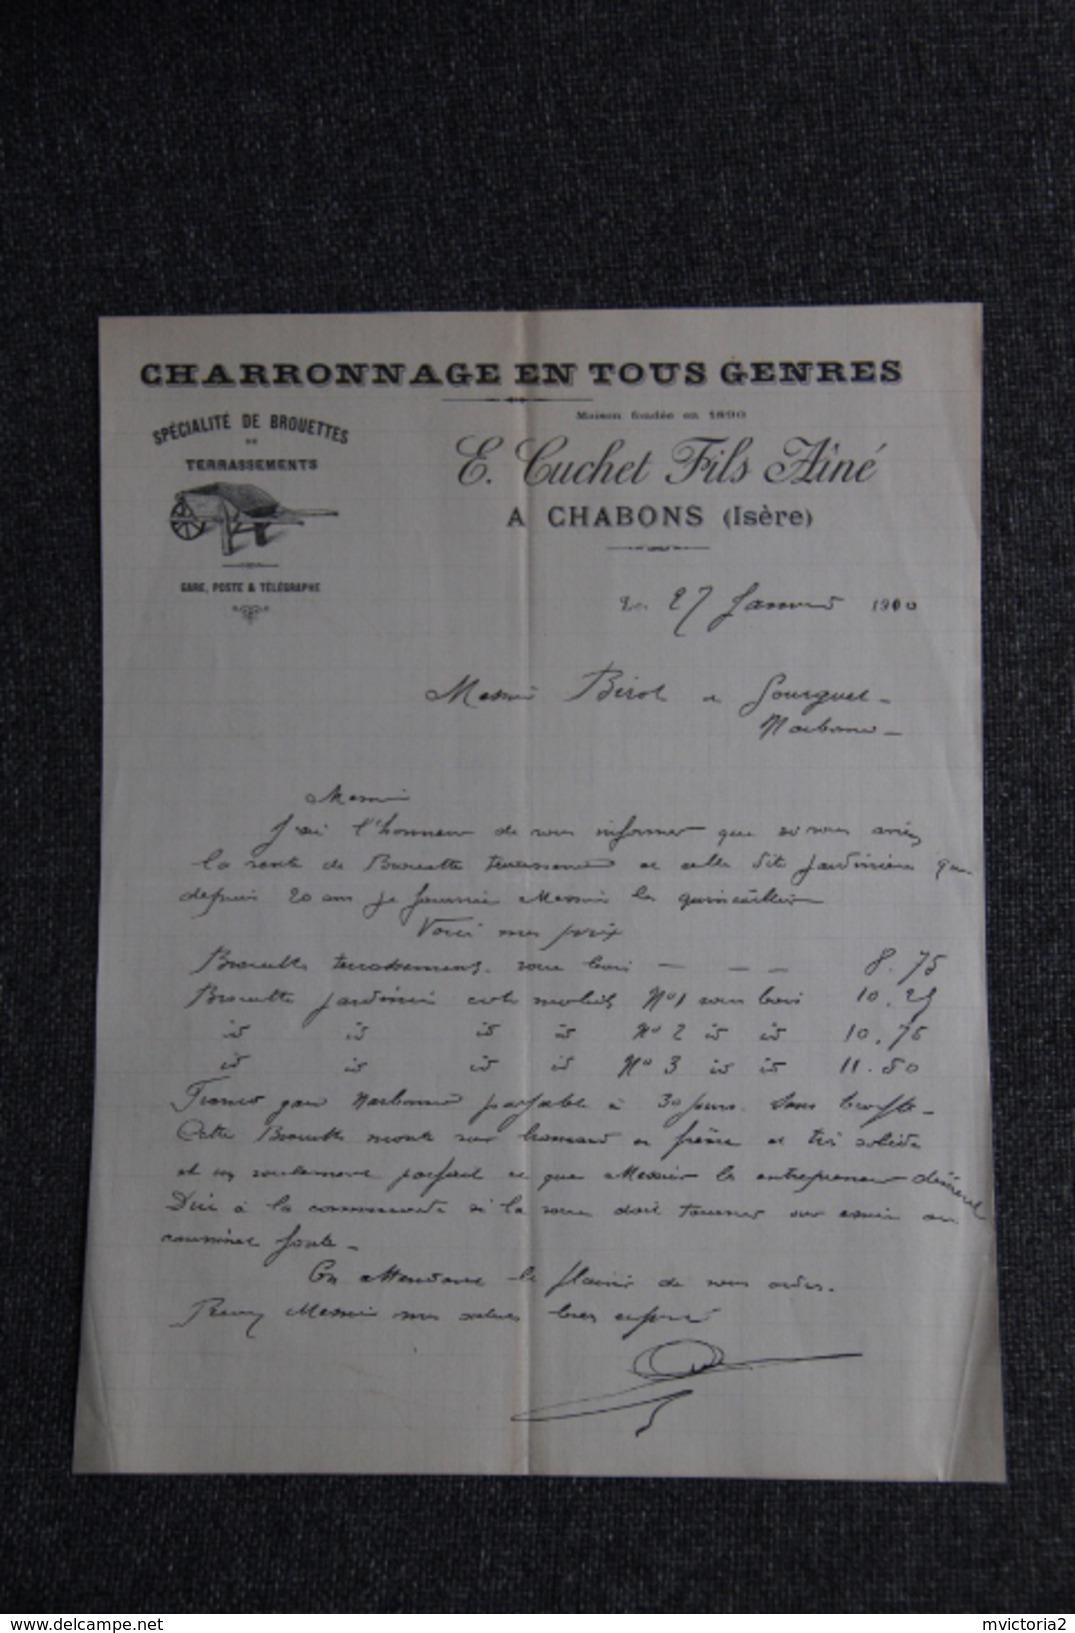 CHARRONNAGE EN TOUS GENRES
Maison fondée en 1890
SPÉCIALITÉ DE BROUETTES
DE
TERRASSEMENTS
E. Cuchet Fils Aîné
A CHABONS (Isère)
GARE, POSTE & TÉLÉGRAPHE
Le 27 Janvier 1900
Messieurs Birot et Gourguet
Narbonne
Messieurs
J'ai l'honneur de vous informer que si vous aviez
la vente de Brouette terrassement et celle dite jardinière que
depuis 20 ans je fournis Messieurs les quincaillers
Voici mes prix
Brouette terrassement roue bois — — — 8.75
Brouette jardinière mobiles No 1 roue bois 10.25
id id id id No 2 id id 10.75
id id id id No 3 id id 11.50
Franco gare Narbonne payable à 30 jours. Sans escompte
Cette Brouette monté sur en frêne et très solide
et roulement parfait ce que Messieurs les entrepreneurs désirent
à la commande si la roue doit tourner sur essieu ou
fonte
En attendant le plaisir de vos ordres.
Recevez Messieurs mes salutations
www.delcampe.net
mvictoria2